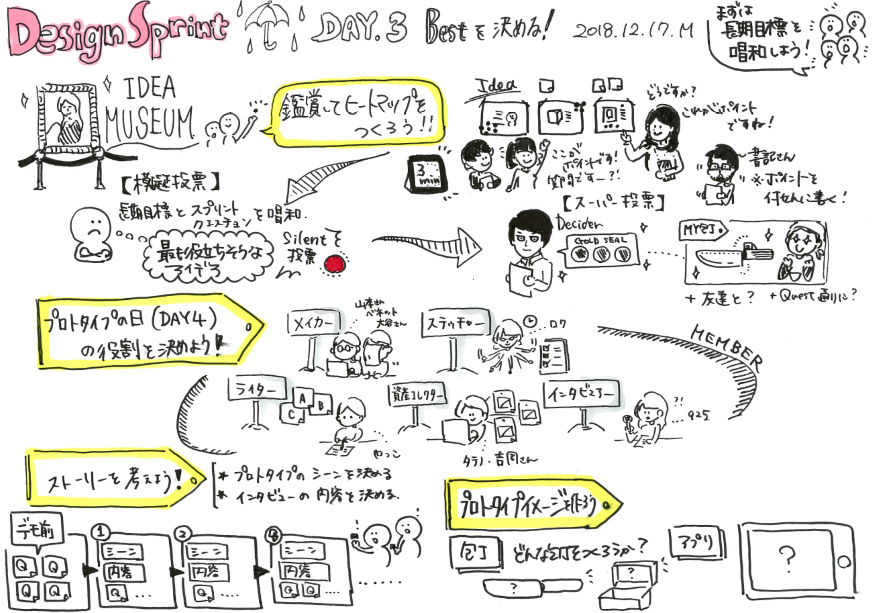 Design Sprint DAY.3 Bestを決める! 2018.12.17.M
まずは
長期目標を
唱和しよう!
IDEA
MUSEUM
鑑賞してヒートマップを
つくろう!!
Idea
どうですか?
これがポイント
ですね!
3
min
ここが
ポイントです!
質問ですー?!
書記さん
※ポイントを
付せんに書く!
【模擬投票】
長期目標とスプリント
クエスチョンを唱和.
最も役立ちそうな
アイデア
Silentを
投票
【スーパー投票】
Decider
GOLD SEAL
MY包丁
+ 友達と? + Quest通りに?
プロトタイプの日(DAY4)
の役割を決めよう!
メイカー
山本さん
ベネット
大谷さん
ステッチャー
ロク
MEMBER
ライター
A
B
C
やっこ
資産コレクター
タラノ・吉岡さん
インタビュアー
?!
ストーリーを考えよう!
* プロトタイプのシーンを決める
* インタビューの内容を決める.
プロトタイプイメージを作ろう
デモ前
Q Q
Q Q
1
シーン
内容
Q ...
2
シーン
内容
Q ...
8
シーン
内容
Q ...
包丁
どんな包丁をつくろうか?
?
?
アプリ
?